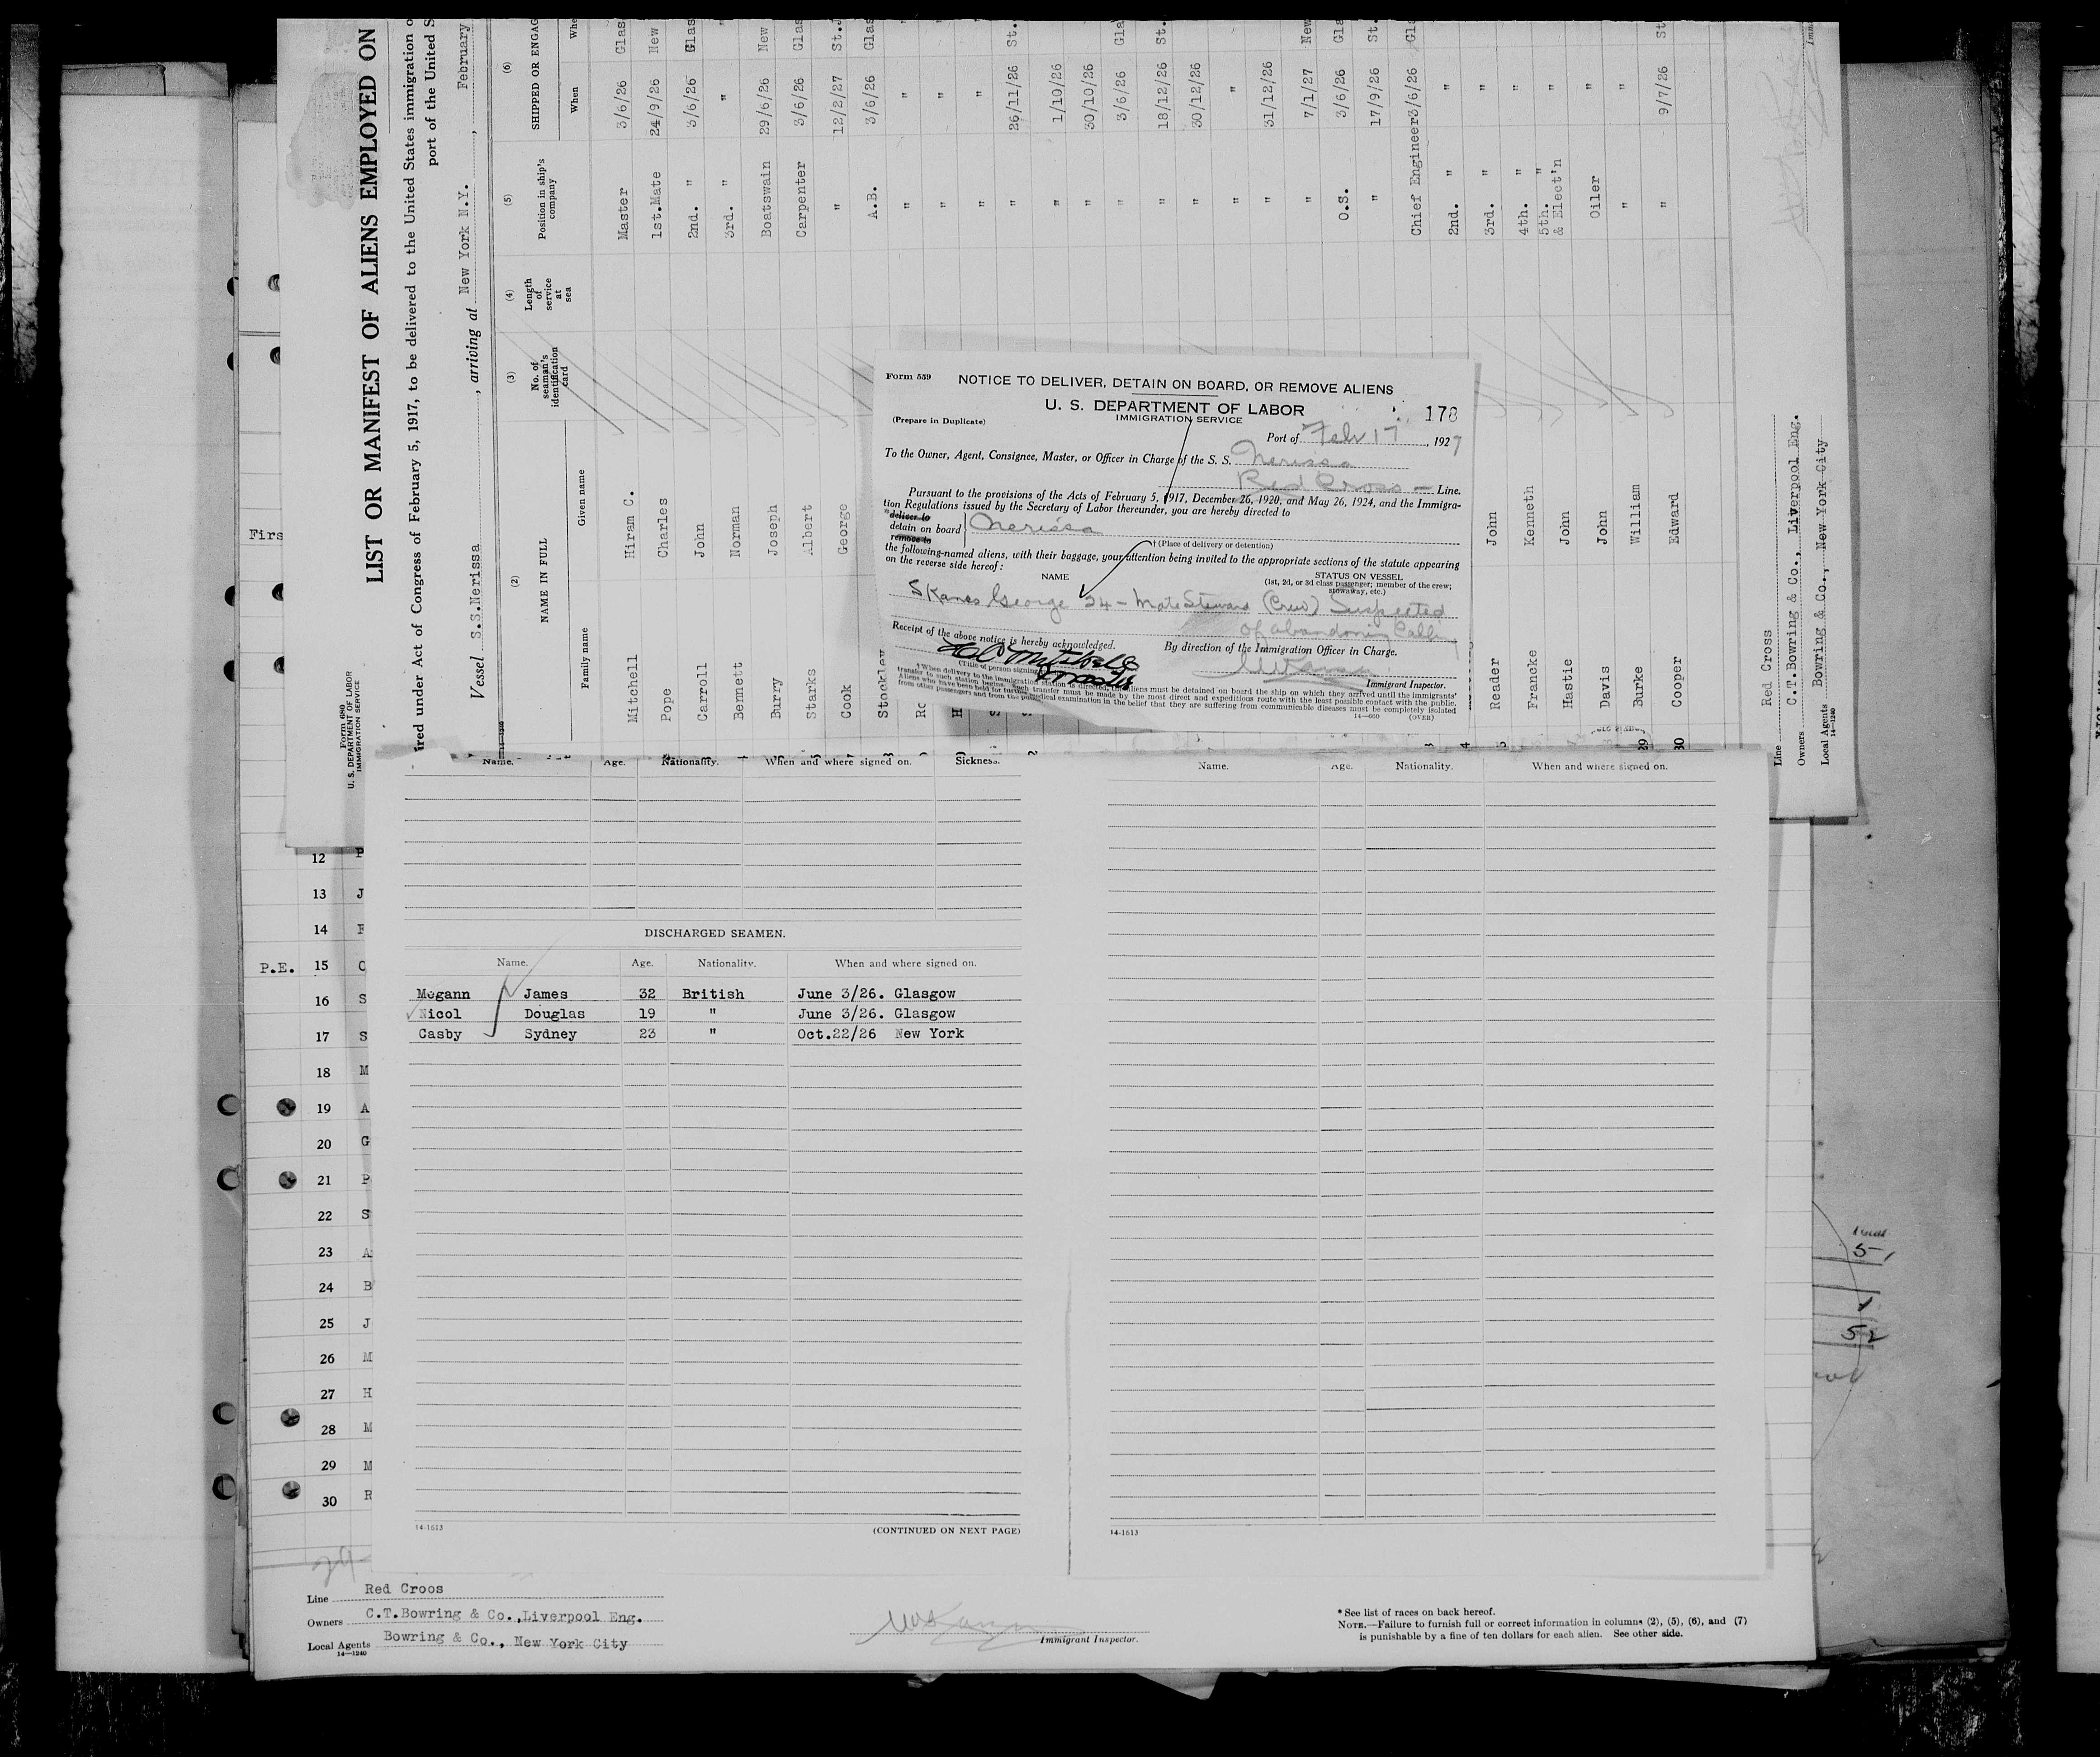 LIST OR MANIFEST OF ALIENS EMPLOYED ON
ired under Act of Congress of February 5, 1917, to be delivered to the United States immigration o
port of the United S
Vessel S.S.Nerissa, arriving at New York N.Y., February
Form 680
U. S. DEPARTMENT OF LABOR
IMMIGRATION SERVICE
(2) (3) (4) (5) (6)
NAME IN FULL
Family name Given name
No. of seaman's identification card
Length of service at sea
Position in ship's company
SHIPPED OR ENGAG
When Whe
Mitchell Hiram C. Master 3/6/26 Glas
Pope Charles 1st.Mate 24/9/26 New
Carroll John 2nd. " 3/6/26 Glas
Bennett Norman 3rd. " "
Burry Joseph Boatswain 29/6/26 New
Starks Albert Carpenter 3/6/26 Glas
Cook George " 12/2/27 St.J
Stockley A.B. 3/6/26 Glas
" "
" "
" "
" 26/11/26 St.
" 1/10/26
" 30/10/26
" 3/6/26 Gla
" 18/12/26 St.
" 30/12/26
" "
" 31/12/26
" 7/1/27 New
O.S. 3/6/26 Gla
" 17/9/26 St.
Chief Engineer 3/6/26 Gla
2nd. " "
Reader John 3rd. " "
Francke Kenneth 4th. " "
Hastie John 5th. " & Elect'n "
Davis John Oiler "
29 Burke William " "
30 Cooper Edward " 9/7/26 St
Line Red Cross
Owners C.T.Bowring & Co., Liverpool Eng.
Local Agents Bowring & Co., New York City
14—1240
Form 559
NOTICE TO DELIVER, DETAIN ON BOARD, OR REMOVE ALIENS
U. S. DEPARTMENT OF LABOR
IMMIGRATION SERVICE
178
(Prepare in Duplicate)
Port of Feb 17, 1927
To the Owner, Agent, Consignee, Master, or Officer in Charge of the S. S. Nerissa
Red Cross — Line.
Pursuant to the provisions of the Acts of February 5, 1917, December 26, 1920, and May 26, 1924, and the Immigra-
tion Regulations issued by the Secretary of Labor thereunder, you are hereby directed to
*deliver to
detain on board Nerissa
remove to
† (Place of delivery or detention)
the following-named aliens, with their baggage, your attention being invited to the appropriate sections of the statute appearing
on the reverse side hereof:
NAME
STATUS ON VESSEL
(1st, 2d, or 3d class passenger; member of the crew;
stowaway, etc.)
Skanes George 24 - Mate Steward (Crew) Suspected
of abandoning Calling
Receipt of the above notice is hereby acknowledged.
By direction of the Immigration Officer in Charge.
Mitchell
Master
(Title of person signing)
Immigrant Inspector.
† When delivery to the immigration station is directed, the aliens must be detained on board the ship on which they arrived until the immigrants'
transfer to such station begins. Such transfer must be made by the most direct and expeditious route with the least possible contact with the public.
Aliens who have been held for further medical examination in the belief that they are suffering from communicable diseases must be completely isolated
from other passengers and from the public.
14—660 (OVER)
Firs
Name. Age. Nationality. When and where signed on. Sickness.
DISCHARGED SEAMEN.
Name. Age. Nationality. When and where signed on.
Mcgann James 32 British June 3/26. Glasgow
Nicol Douglas 19 " June 3/26. Glasgow
Casby Sydney 23 " Oct.22/26 New York
14-1613
(CONTINUED ON NEXT PAGE)
Name. Age. Nationality. When and where signed on.
14-1613
12 P
13 J
14 F
P.E. 15 C
16 S
17 S
18 M
19 A
20 G
21 P
22 S
23 A
24 B
25 J
26 M
27 H
28 M
29 M
30 R
Total
51
52
Line Red Croos
Owners C.T.Bowring & Co.,Liverpool Eng.
Local Agents Bowring & Co., New York City
14—1240
Immigrant Inspector.
* See list of races on back hereof.
NOTE.—Failure to furnish full or correct information in columns (2), (5), (6), and (7)
is punishable by a fine of ten dollars for each alien. See other side.